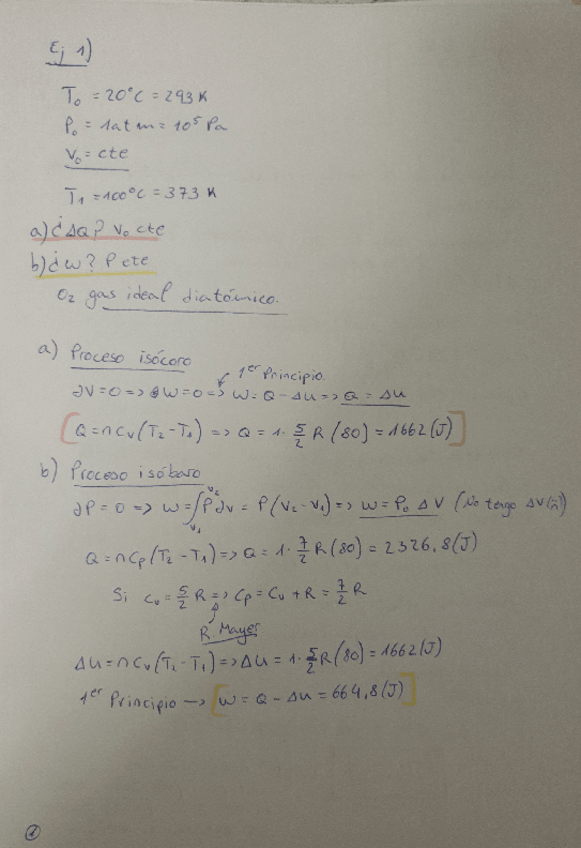 Ej 1)
T₀ = 20°C = 293 K
P₀ = 1atm = 10⁵ Pa
V₀ = cte
T₁ = 100°C = 373 K
a) ¿ΔQ? V₀ cte
b) ¿W? P cte
O₂ gas ideal diatómico.
a) Proceso isócoro
1er Principio.
∂V=0 => ∂W=0 => W= Q - Δu => Q = Δu
[Q = n Cv (T₂ - T₁) => Q = 1 · 5/2 R (80) = 1662 (J)]
b) Proceso isóbaro
∂P = 0 => W = ∫_{V₁}^{V₂} P ∂v = P (V₂ - V₁) => W = P₀ ΔV (No tengo ΔV(ñ))
Q = n Cp (T₂ - T₁) => Q = 1 · 7/2 R (80) = 2326,8 (J)
Si Cv = 5/2 R => Cp = Cv + R = 7/2 R
R. Mayer
Δu = n Cv (T₂ - T₁) => Δu = 1 · 5/2 R (80) = 1662 (J)
1er Principio -> [W = Q - Δu = 664,8 (J)]
1